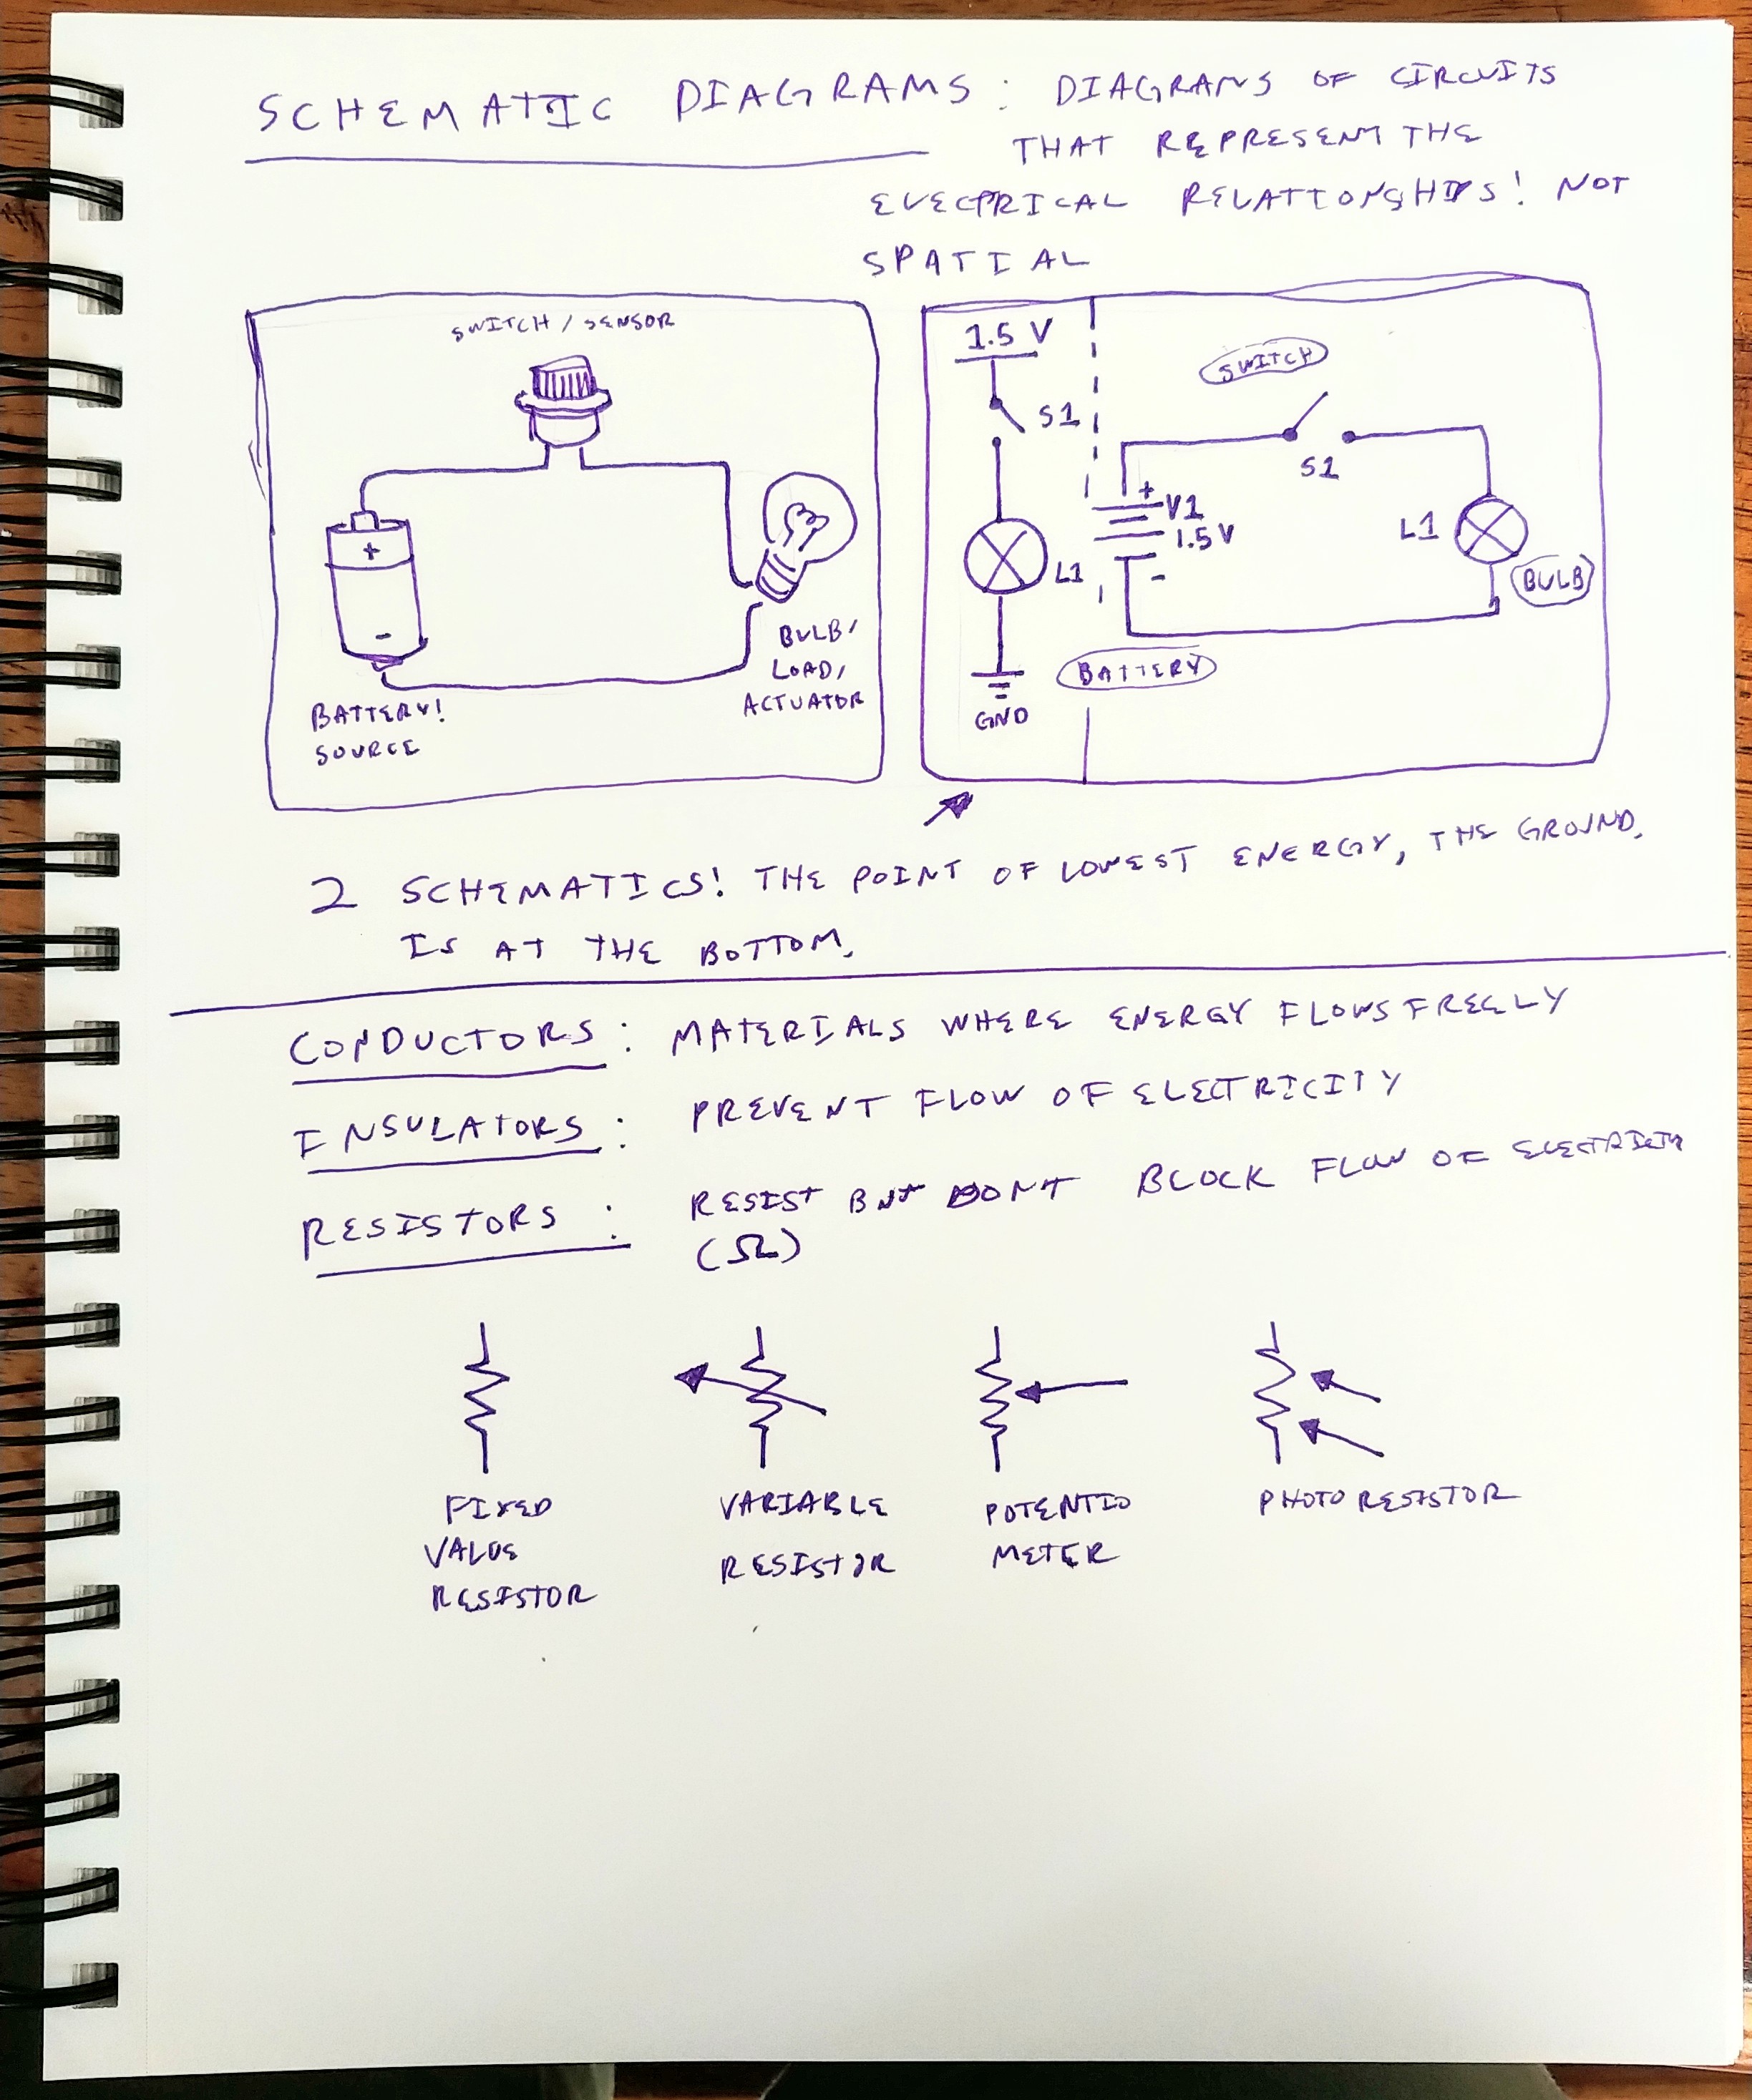 SCHEMATIC DIAGRAMS: DIAGRAMS OF CIRCUITS
THAT REPRESENT THE
ELECTRICAL RELATIONSHIPS! NOT
SPATIAL
SWITCH / SENSOR
+
-
BATTERY!
SOURCE
BULB/
LOAD/
ACTUATOR
1.5 V
S1
L1
GND
SWITCH
S1
+
V1
1.5 V
-
L1
BULB
BATTERY
2 SCHEMATICS! THE POINT OF LOWEST ENERGY, THE GROUND,
IS AT THE BOTTOM.
CONDUCTORS: MATERIALS WHERE ENERGY FLOWS FREELY
INSULATORS: PREVENT FLOW OF ELECTRICITY
RESISTORS: RESIST BUT DONT BLOCK FLOW OF ELECTRICITY
(Ω)
FIXED
VALUE
RESISTOR
VARIABLE
RESISTOR
POTENTIO
METER
PHOTO RESISTOR